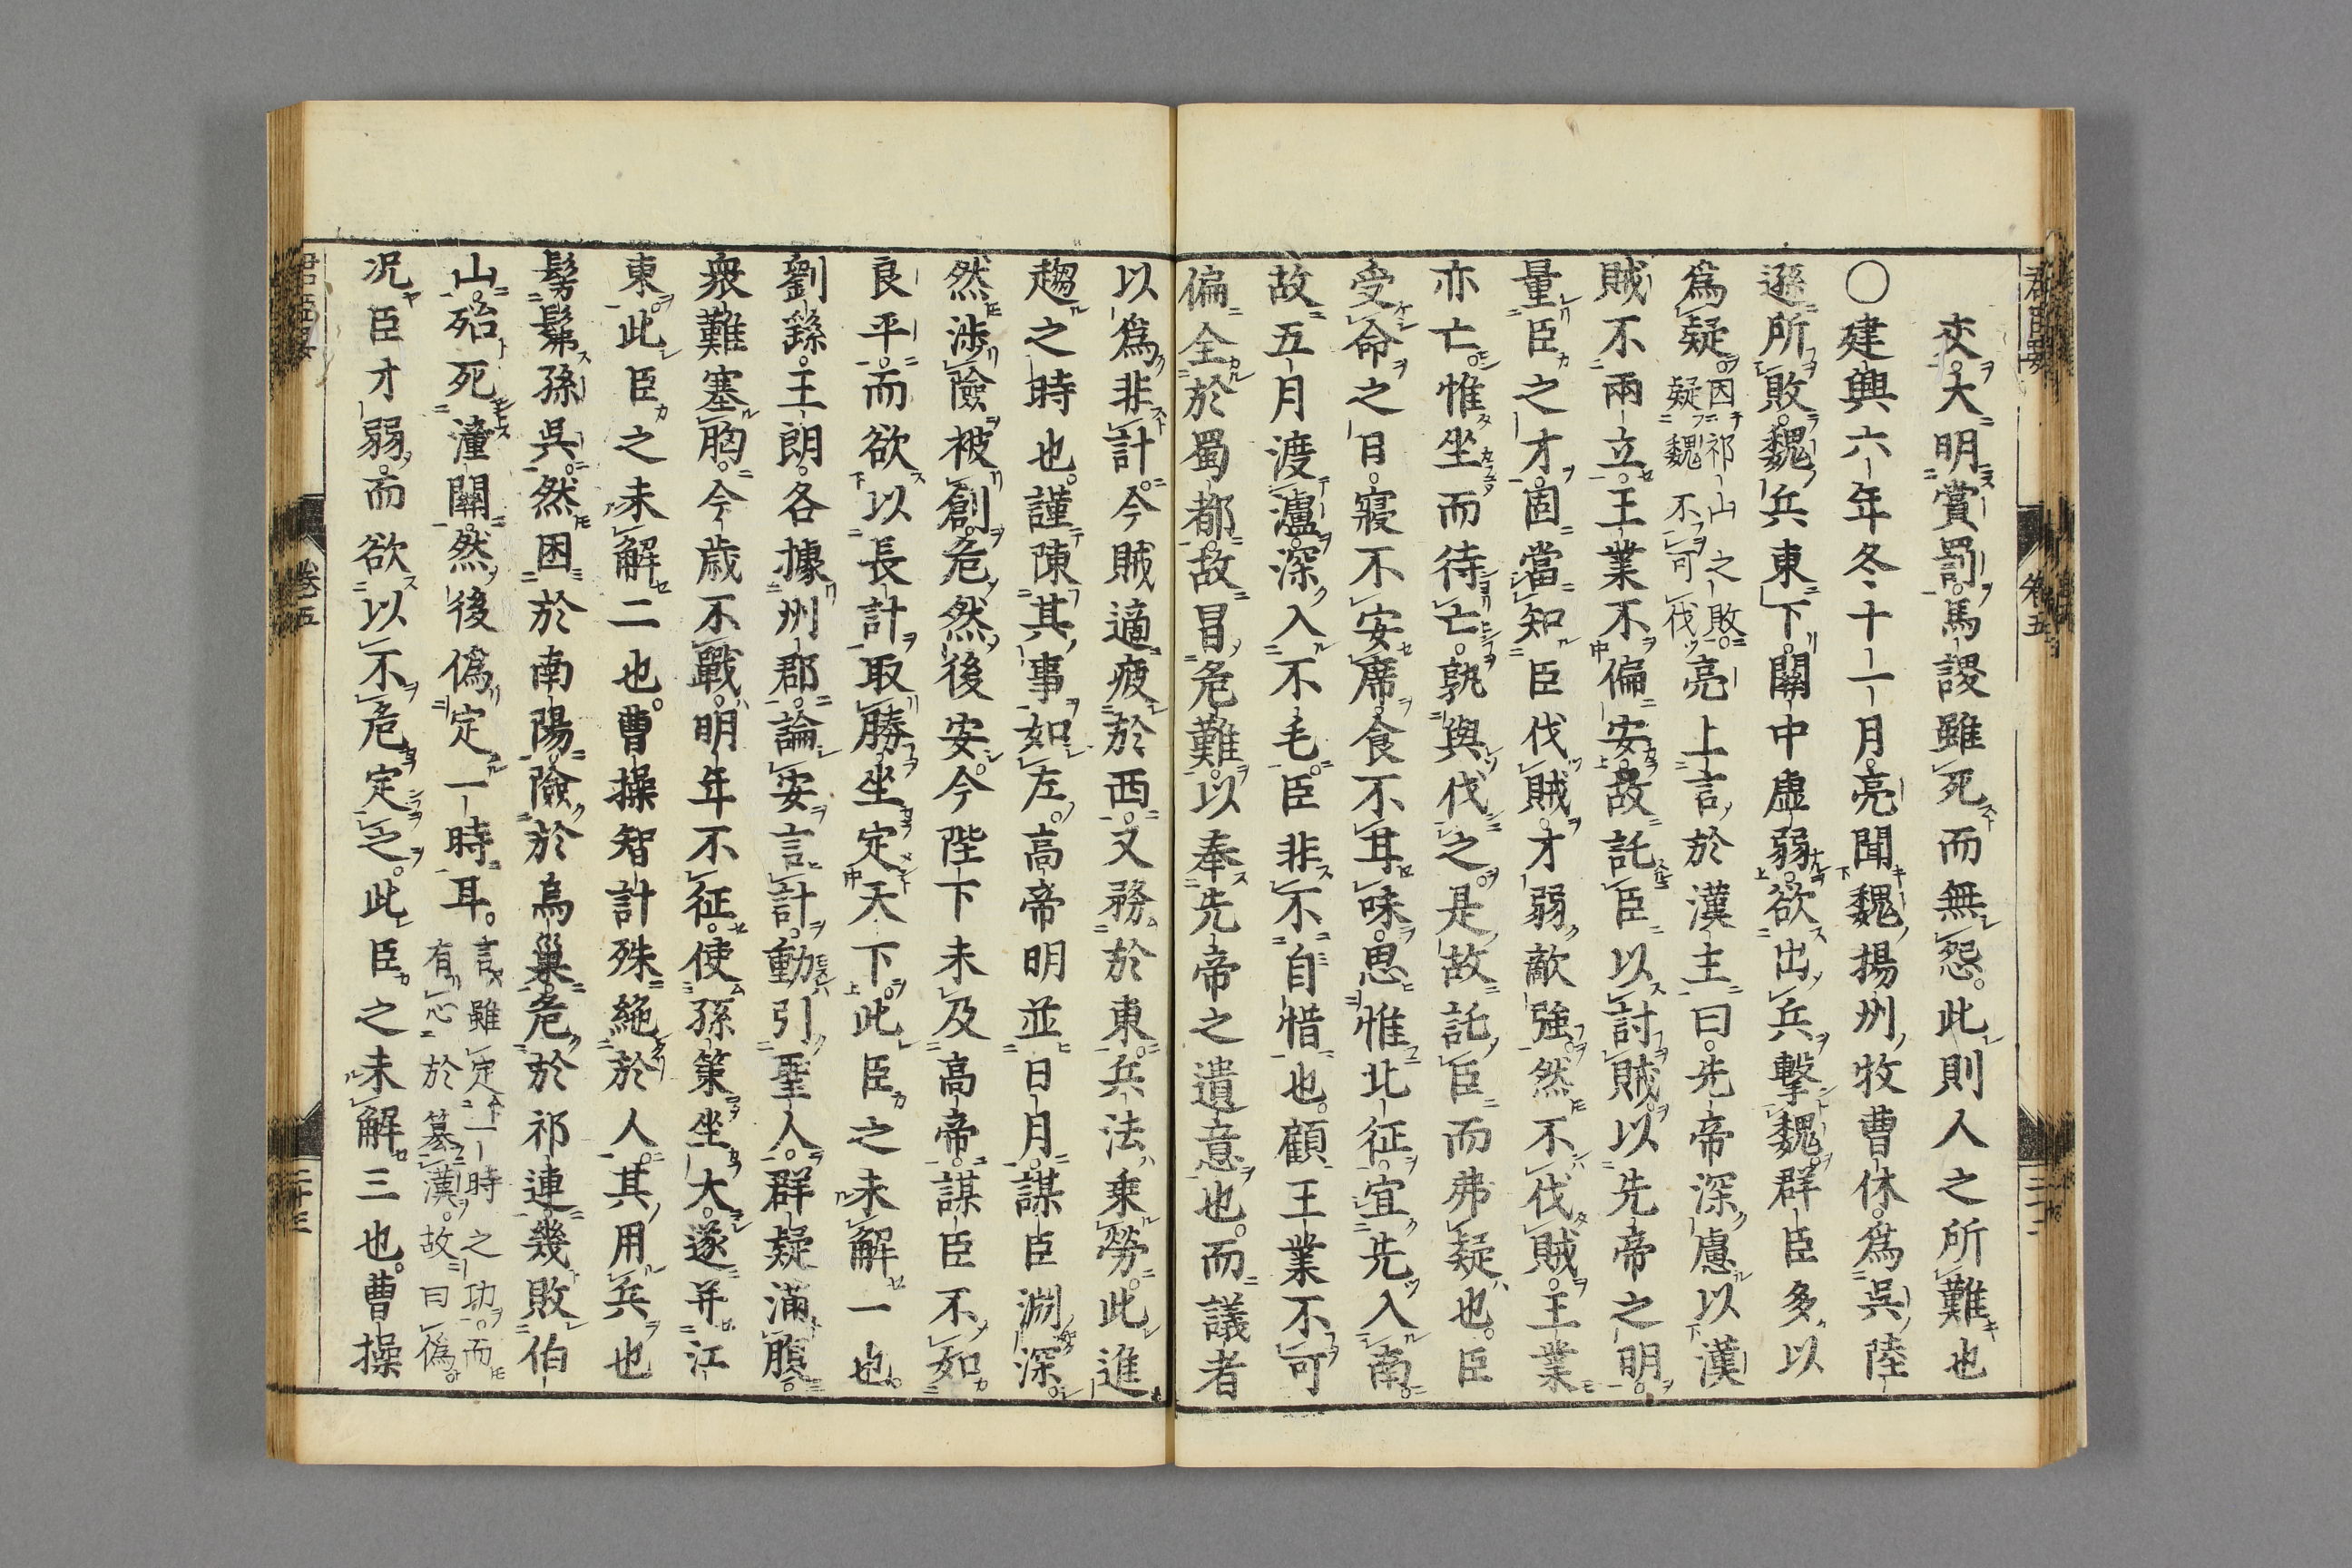 交大明賞罰馬謖雖死而無怨此則人之所難也
〇建興六年冬十一月亮聞魏揚州牧曹休爲吳陸
遜所敗魏兵東下關中虛弱欲出兵擊魏群臣多以
爲疑因祁山之敗疑魏不可伐亮上言於漢主曰先帝深慮以漢
賊不兩立王業不偏安故託臣以討賊以先帝之明
量臣之才固當知臣伐賊才弱敵強然不伐賊王業
亦亡惟坐而待亡孰與伐之是故託臣而弗疑也臣
受命之日寢不安席食不甘味思惟北征宜先入南
故五月渡瀘深入不毛臣非不自惜也顧王業不可
偏全於蜀都故冒危難以奉先帝之遺意也而議者
以爲非計今賊適疲於西又務於東兵法乘勞此進
趨之時也謹陳其事如左高帝明並日月謀臣淵深
然涉險被創危然後安今陛下未及高帝謀臣不如
良平而欲以長計取勝坐定天下此臣之未解一也
劉繇王朗各據州郡論安言計動引聖人群疑滿腹
衆難塞胸今歲不戰明年不征使孫策坐大遂并江
東此臣之未解二也曹操智計殊絶於人其用兵也
髣髴孫吳然困於南陽險於烏巢危於祁連幾敗伯
山殆死潼關然後偽定一時耳言雖定一時之功而有心於簒漢故曰偽
况臣才弱而欲以不危定之此臣之未解三也曹操
卷五
二十三
卷五